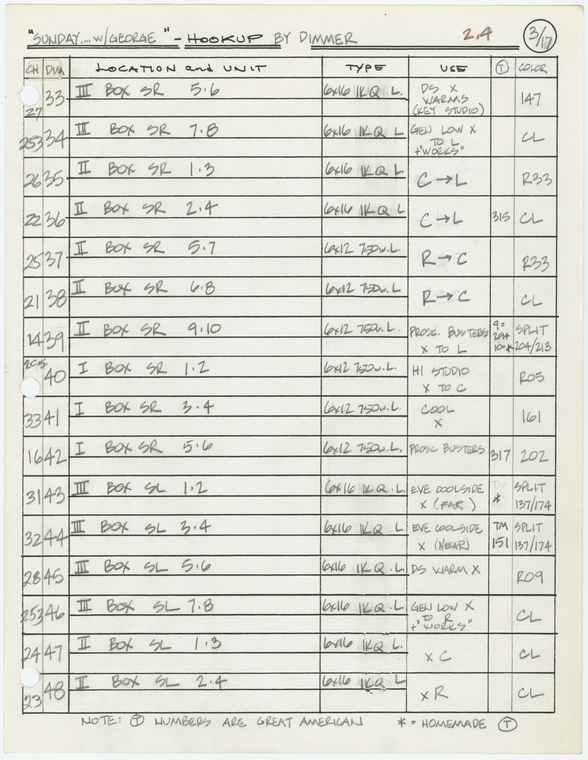 "SUNDAY... w/GEORGE" - HOOKUP BY DIMMER 2,4 3/17
CH DIM LOCATION and UNIT TYPE USE T COLOR
27 33 III BOX SR 5·6 6x16 1KQ L. DS X WARMS (KEY STUDIO) 147
253 34 III BOX SR 7·8 6x16 1KQ L. GEN LOW X TO L +"WORKS" CL
26 35 II BOX SR 1·3 6x16 1KQ L C→L R33
22 36 II BOX SR 2·4 6x16 1KQ L C→L 315 CL
25 37 II BOX SR 5·7 6x12 750W.L. R→C R33
21 38 II BOX SR 6·8 6x12 750W.L. R→C CL
14 39 II BOX SR 9·10 6x12 750W.L. PROSC. BUSTERS X TO L 9= 294 10=* SPLIT 204/213
205 40 I BOX SR 1·2 6x12 750W.L. HI STUDIO X TO C R05
33 41 I BOX SR 3·4 6x12 750W.L. COOL X 161
16 42 I BOX SR 5·6 6x12 750W.L. PROSC BUSTERS 317 202
31 43 III BOX SL 1·2 6x16 1KQ.L. EVE COOLSIDE X (FAR) TM * SPLIT 137/174
32 44 III BOX SL 3·4 6x16 1KQ L. EVE COOLSIDE X (NEAR) TM 151 SPLIT 137/174
28 45 III BOX SL 5·6 6x16 1KQ.L. DS WARM X R09
253 46 III BOX SL 7·8 6x16 1KQ.L GEN LOW X TO R +"WORKS" CL
24 47 II BOX SL 1·3 6x16 1KQ L. X C CL
23 48 II BOX SL 2·4 6x16 1KQ L X R CL
NOTE: T NUMBERS ARE GREAT AMERICAN * = HOMEMADE T